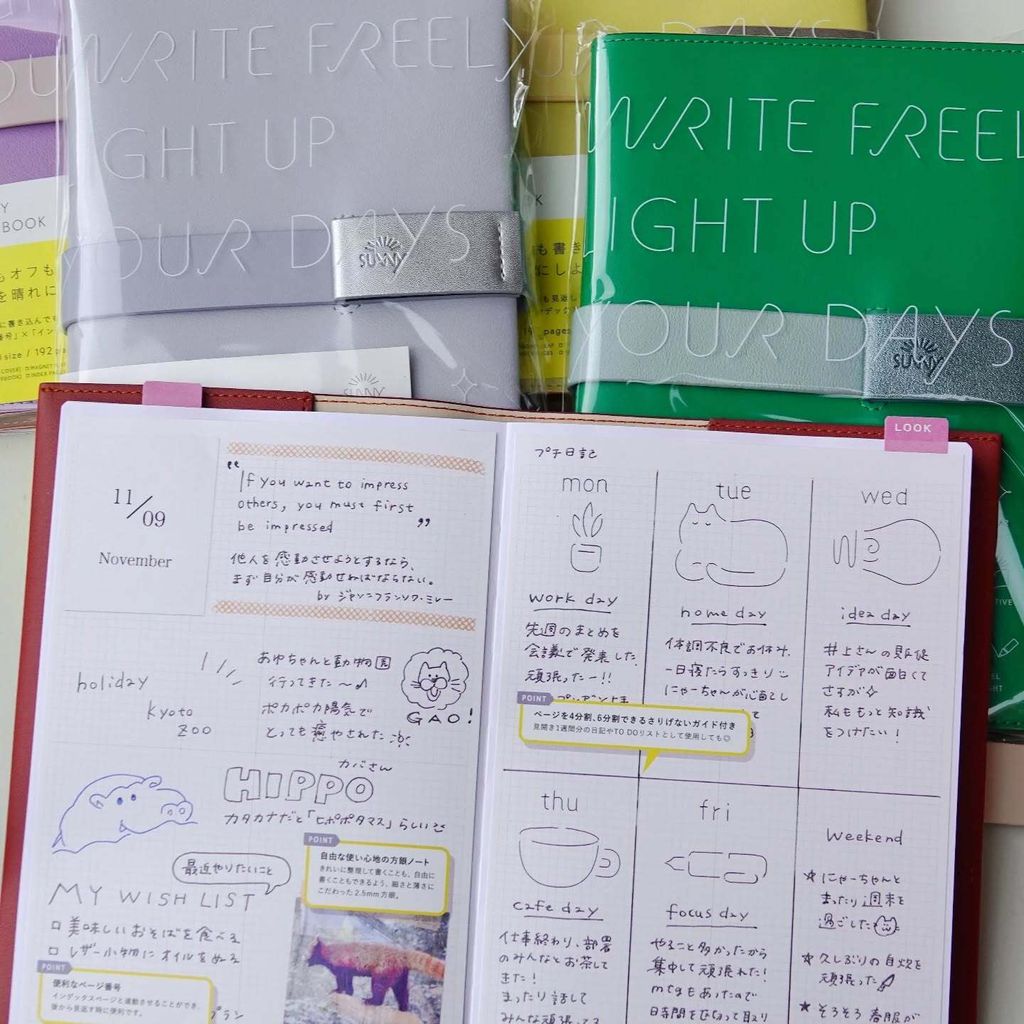 WRITE FREELY
LIGHT UP
YOUR DAYS
SUNNY
WRITE FREEL
LIGHT UP
YOUR DAYS
SUNNY
BOOK
もオフも
を晴れに
size / 192
も書き
にしよ
pages
SUNNY
LOOK
11/09
November
"If you want to impress
others, you must first
be impressed"
他人を感動させようとするなら、
まず自分が感動せねばならない。
by ジャン=フランソワ・ミレー
holiday
Kyoto
zoo
あゆちゃんと動物園
行ってきた〜♪
ポカポカ陽気で
とっても癒やされた
GAO!
カバさん
HIPPO
カタカナだと「ヒポポタマス」らしい
最近やりたいこと
MY WISH LIST
□ 美味しいおそばを食べる
□ レザー小物にオイルをぬる
プラン
POINT
自由な使い心地の方眼ノート
きれいに整理して書くことも、自由に
書くこともできるよう、細さと薄さに
こだわった2.5mm方眼。
POINT
便利なページ番号
インデックスページと連動させることができ、
後から見返す時に便利です。
プチ日記
mon
work day
先週のまとめを
会議で発表した
頑張ったー!!
tue
home day
体調不良でお休み
一日寝たらすっきり
にゃーちゃんが心配し
wed
idea day
井上さんの販促
アイデアが面白くて
さすが☆
私ももっと知識
をつけたい!
POINT
ページを4分割、6分割できるさりげないガイド付き
見開き1週間分の日記やTO DOリストとして使用しても◎
thu
cafe day
仕事終わり、部署
のみんなとお茶して
きた!
まったり話して
みんな頑張ってる
fri
focus day
やること多かったから
集中して頑張れた!
mtgもあったので
時間を区切って取り
weekend
★ にゃーちゃんと
まったり週末を
過ごした
★ 久しぶりの自炊を
頑張った
★ そろそろ春服が